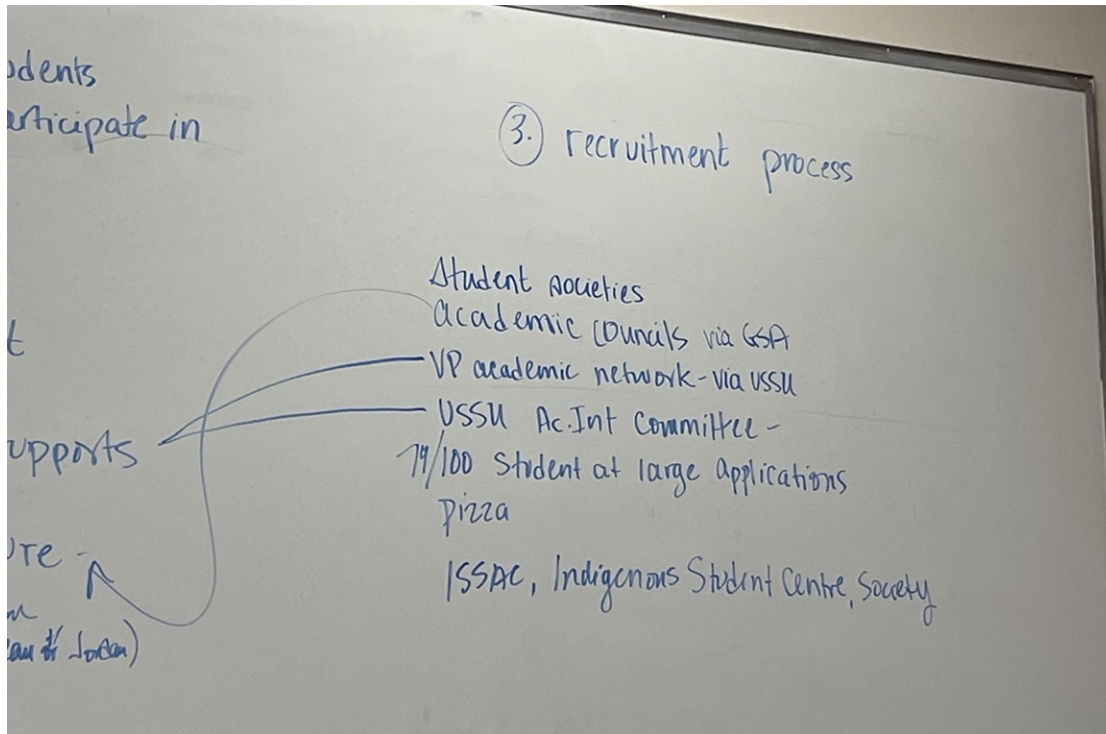 udents
articipate in
t
upports
ore -
3. recruitment process
Student societies
academic councils via GSA
VP academic network - via USSU
USSU Ac.Int Committee -
79/100 Student at large applications
pizza
ISSAC, Indigenous Student Centre, Society